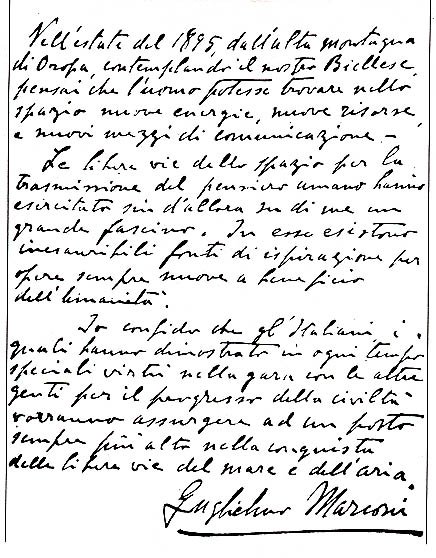 Nell'estate del 1895, dall'alta montagna
di Oropa, contemplando il nostro Biellese,
pensai che l'uomo potesse trovare nello
spazio nuove energie, nuove risorse,
e nuovi mezzi di comunicazione. —
Le libere vie dello spazio per la
trasmissione del pensiero umano hanno
esercitato sin d'allora su di me un
grande fascino. In esse esistono
inesauribili fonti di ispirazione per
opere sempre nuove a beneficio
dell'Umanità.
Io confido che gl'Italiani i
quali hanno dimostrato in ogni tempo
speciali virtù nella gara con le altre
genti per il progresso della civiltà
vorranno assurgere ad un posto
sempre più alto nella conquista
delle libere vie del mare e dell'aria.
Guglielmo Marconi